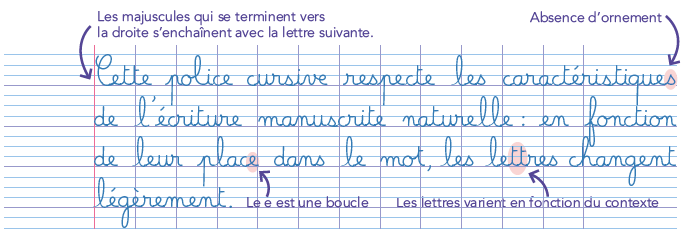 Les majuscules qui se terminent vers
la droite s’enchaînent avec la lettre suivante.
Absence d’ornement
Cette police cursive respecte les caractéristiques
de l’écriture manuscrite naturelle : en fonction
de leur place dans le mot, les lettres changent
légèrement.
Le e est une boucle
Les lettres varient en fonction du contexte